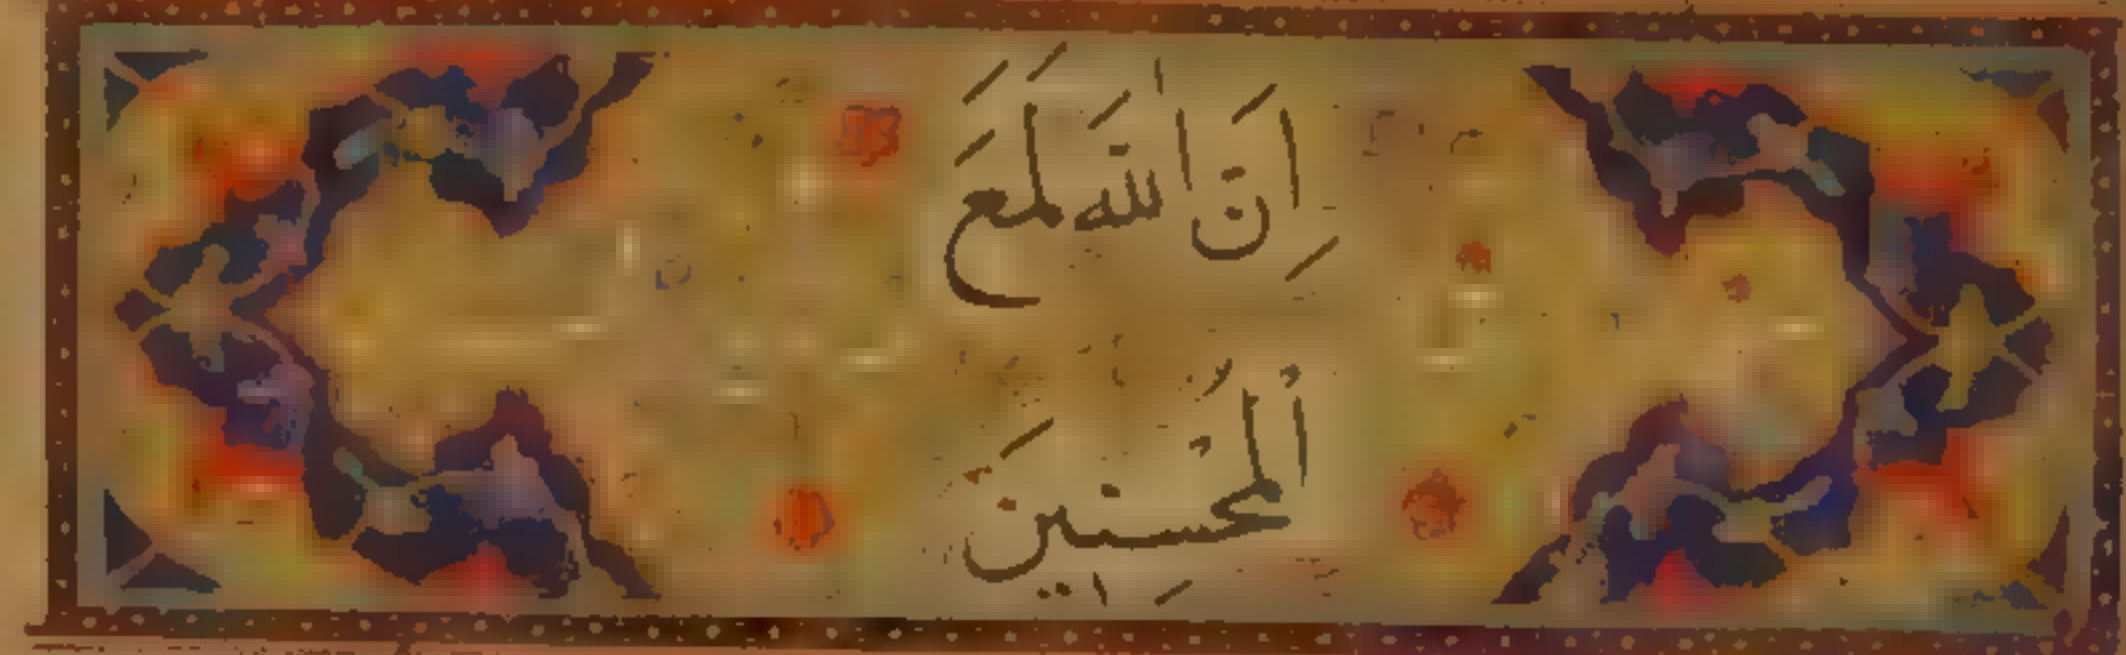 اِنَّ اللهَ لَمَعَ
الْمُحْسِنِينَ